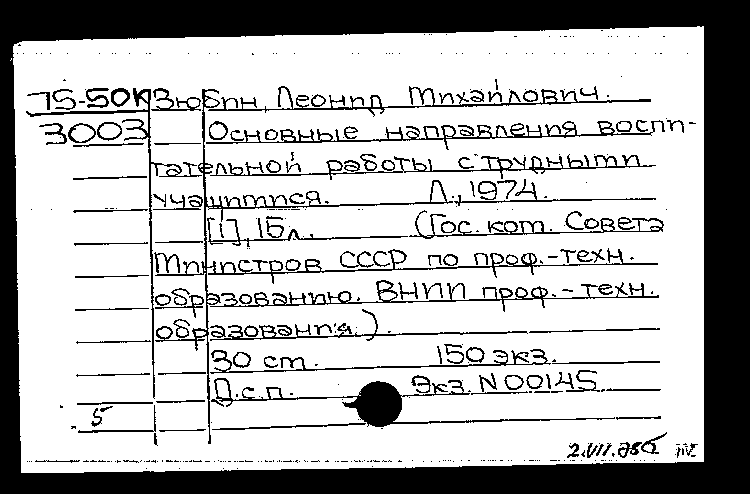 75-50К Зюбин, Леонид Михайлович.
3003 Основные направления воспи-
тательной работы с трудными
учащимися. Л., 1974.
[1], 15 л. (Гос. ком. Совета
Министров СССР по проф.-техн.
образованию. ВНИИ проф.-техн.
образования.).
30 см. 150 экз.
Д.с.п. Экз. N 00145
5
2.VII.